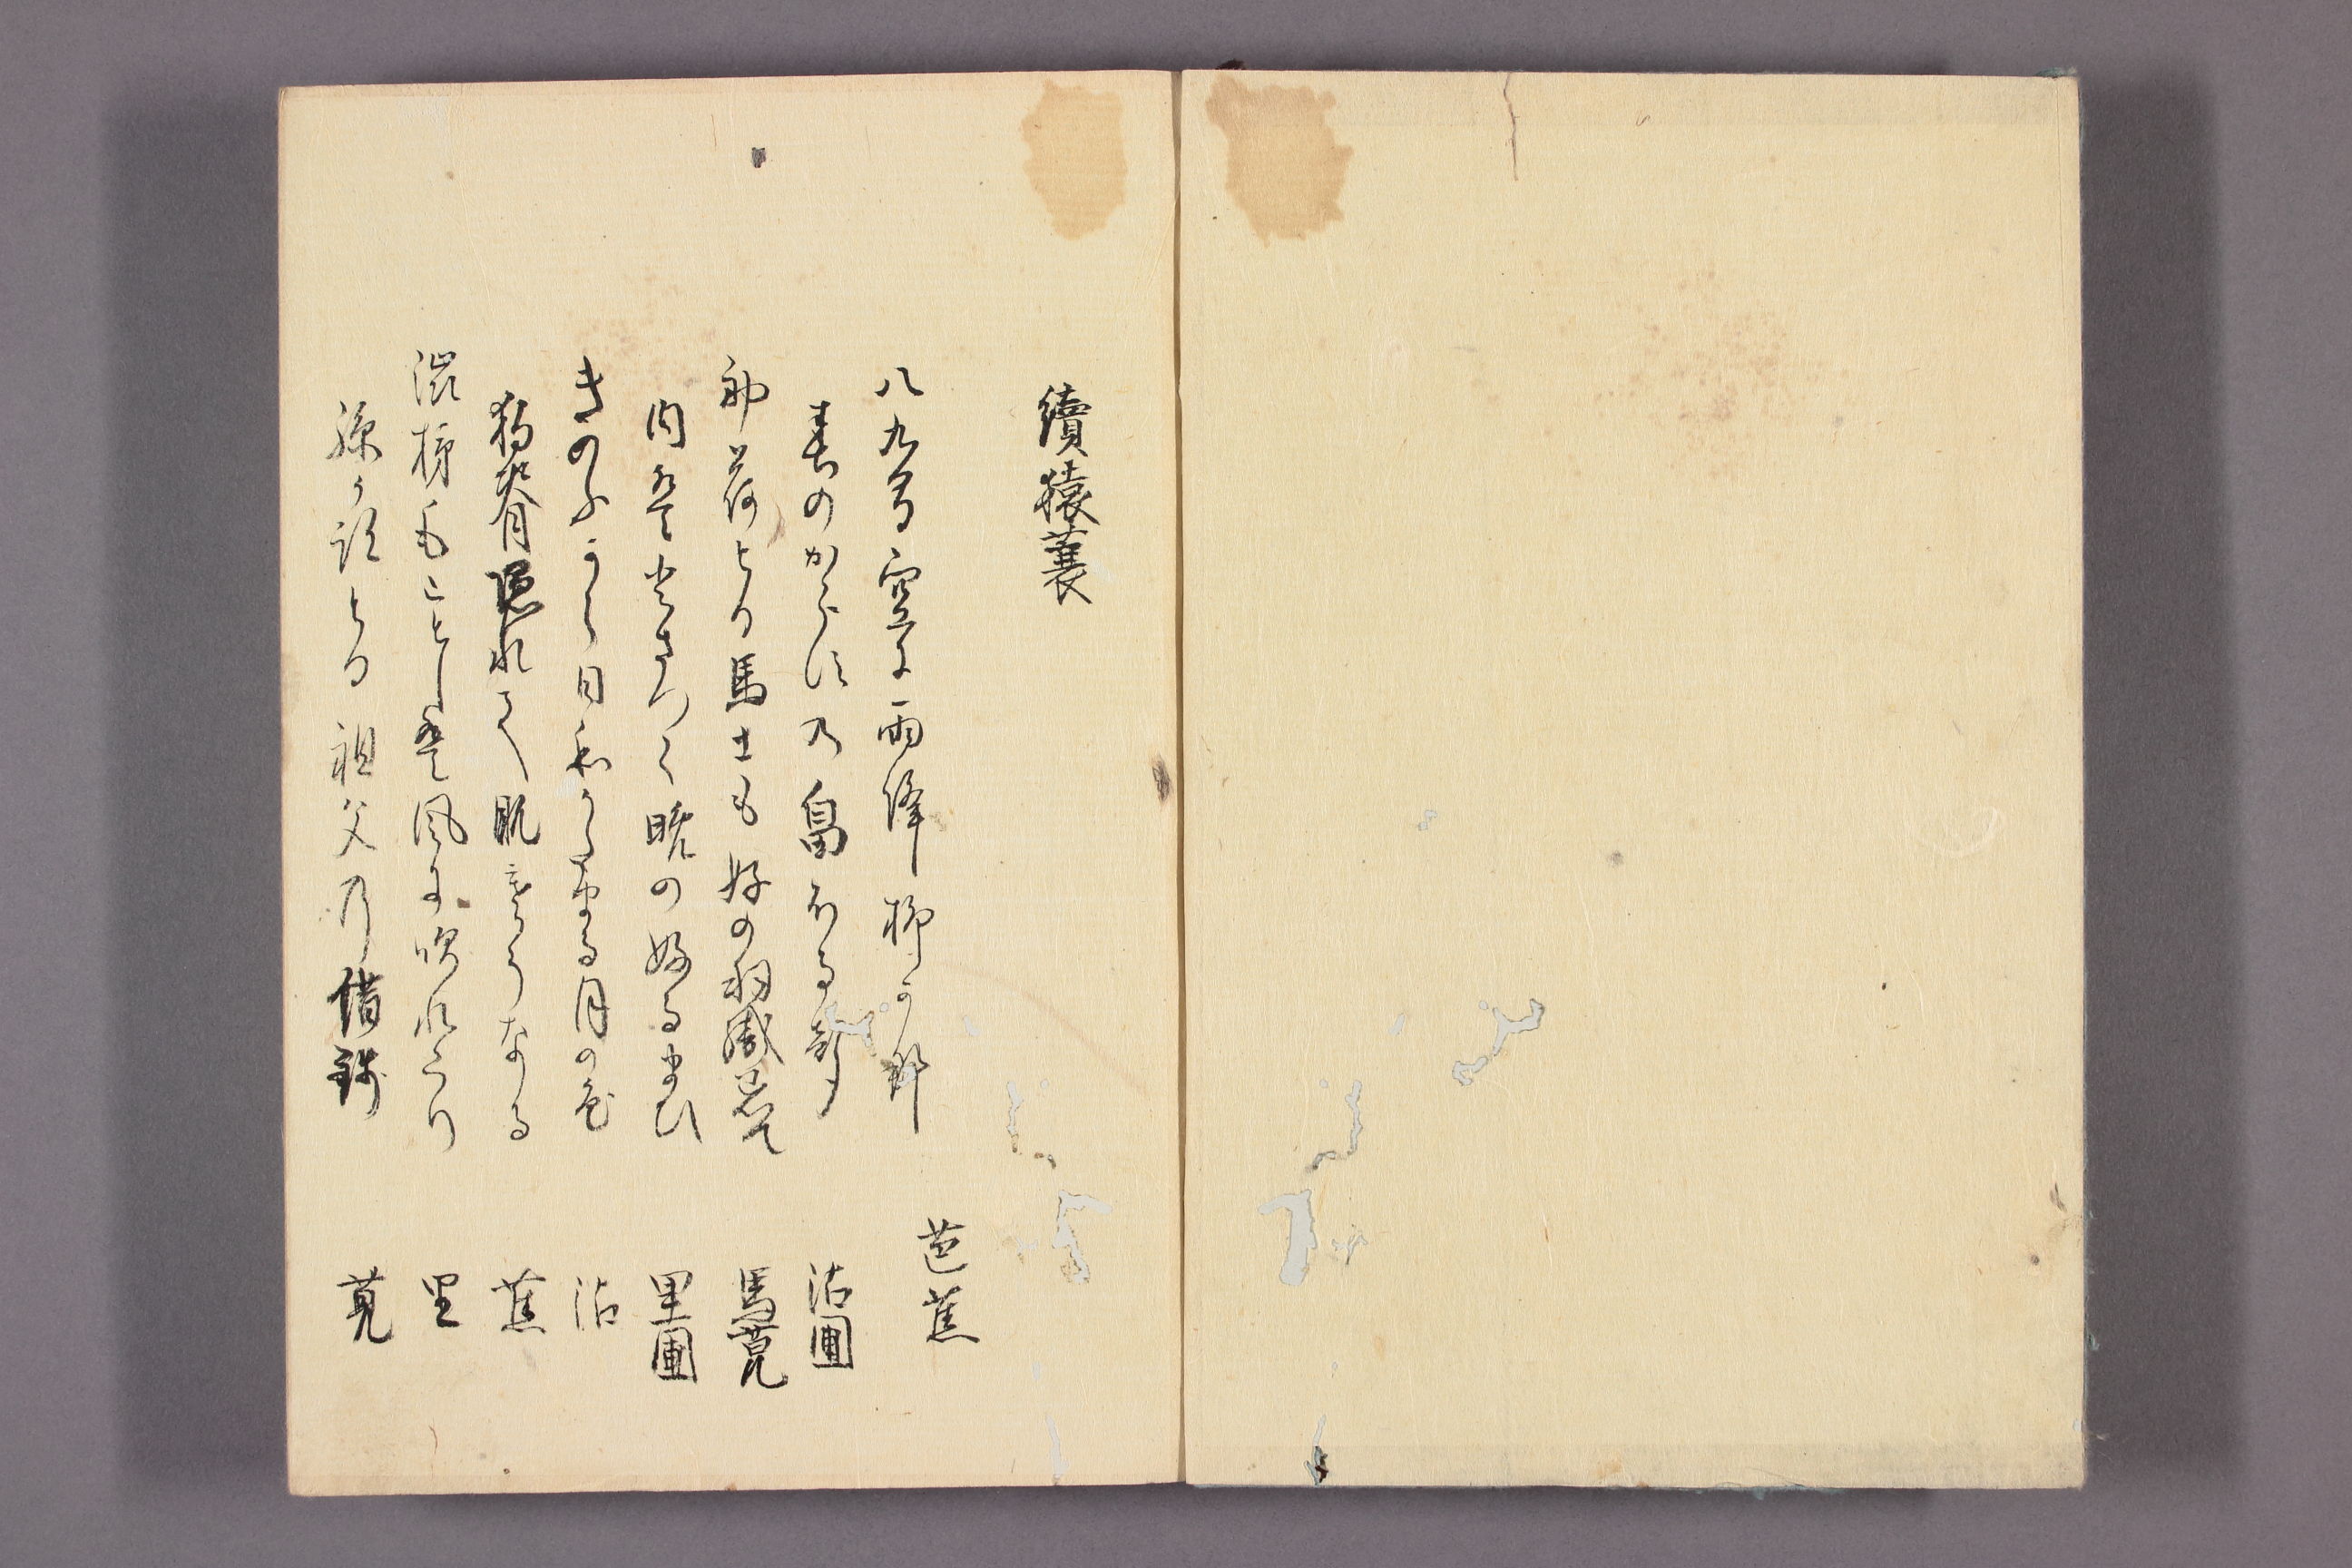 續猿蓑
八九間空で雨降柳かな 芭蕉
春のからすの畠ほる声 沾圃
初荷とる馬士も好の羽織きて 馬莧
内はどさつく晩の振まひ 里圃
きのふから日和かたまる月の色 沾
狗脊かれて肌寒うなる 蕉
渋柿もことしは風に吹れたり 里
孫が跡とる祖父の借銭 莧